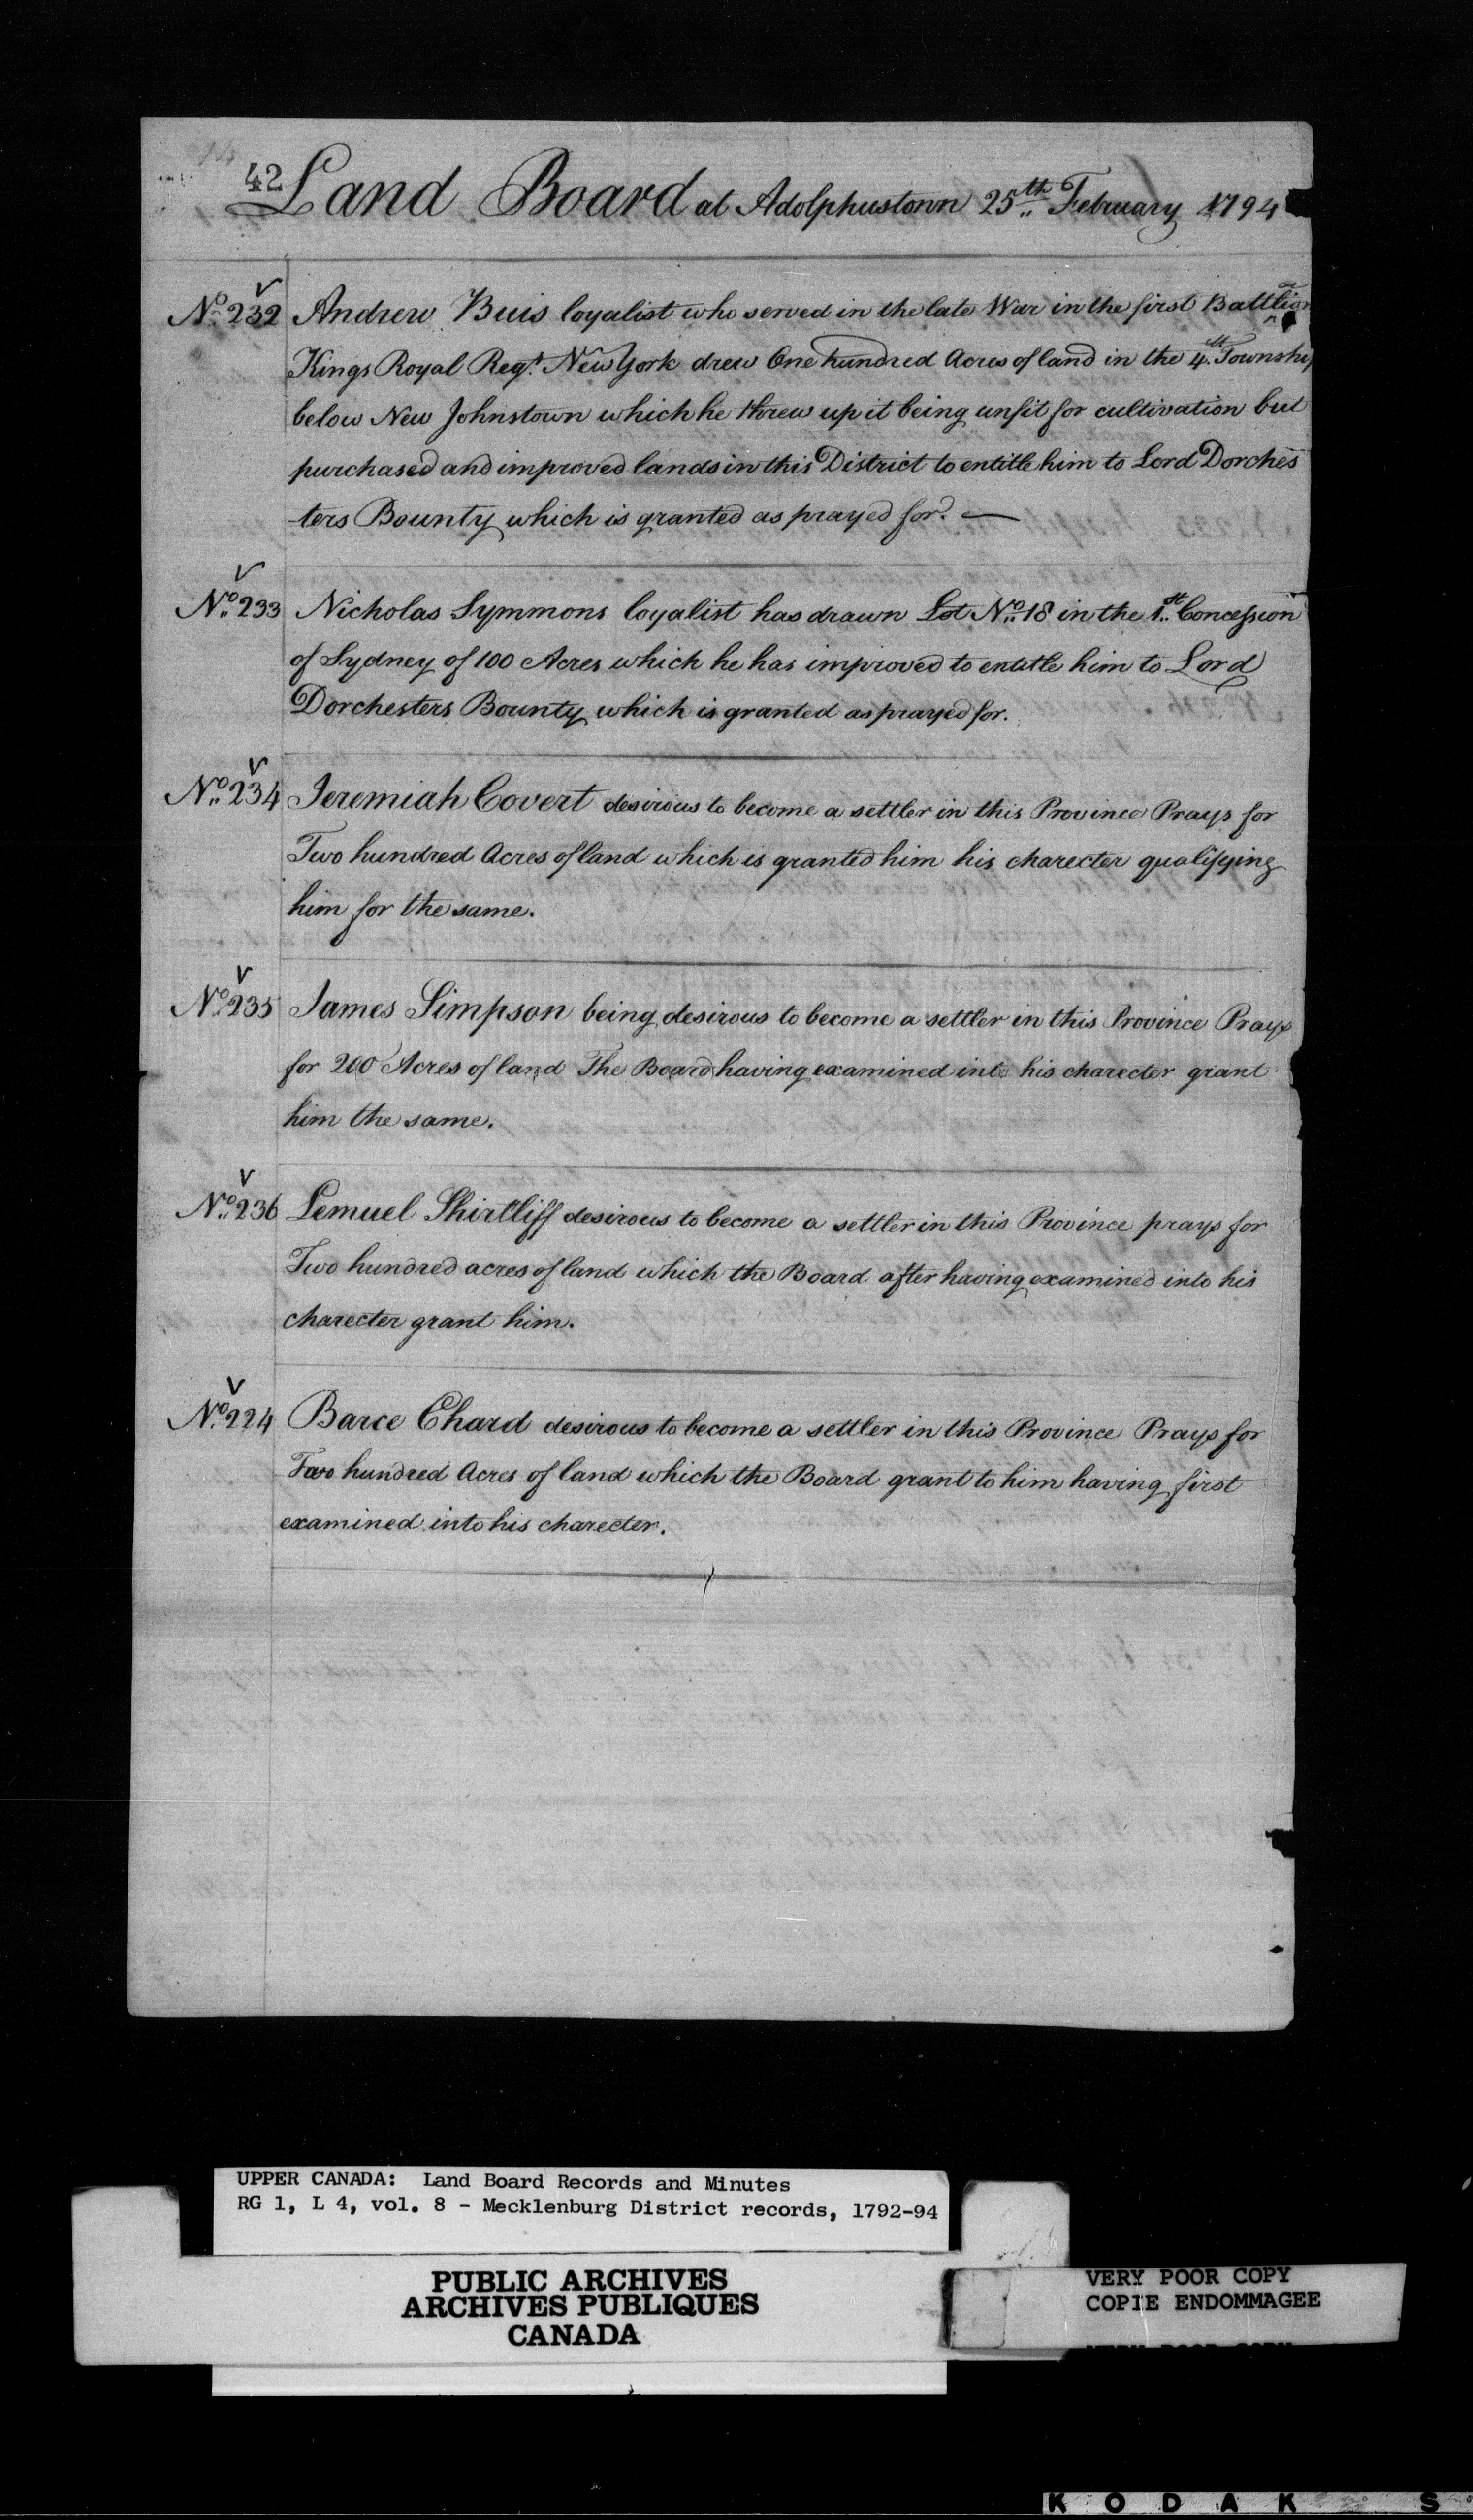 42 Land Board at Adolphustown 25th February 1794
No 232 Andrew Buis loyalist who served in the late War in the first Battlion
Kings Royal Regt. New York drew One hundred Acres of land in the 4th Township
below New Johnstown which he threw up it being unfit for cultivation but
purchased and improved lands in this District to entitle him to Lord Dorches
ters Bounty which is granted as prayed for. —
No 233 Nicholas Symmons loyalist has drawn Lot No 18 in the 1st Concession
of Sydney of 100 Acres which he has improved to entitle him to Lord
Dorchesters Bounty which is granted as prayed for.
No 234 Jeremiah Covert desirous to become a settler in this Province Prays for
Two hundred Acres of land which is granted him his charecter qualifying
him for the same.
No 235 James Simpson being desirous to become a settler in this Province Prays
for 200 Acres of land The Board having examined into his charecter grant
him the same.
No 236 Lemuel Shirtliff desirous to become a settler in this Province prays for
Two hundred acres of land which the Board after having examined into his
charecter grant him.
No 224 Barce Chard desirous to become a settler in this Province Prays for
Two hundred Acres of land which the Board grant to him having first
examined into his charecter.
UPPER CANADA: Land Board Records and Minutes
RG 1, L 4, vol. 8 - Mecklenburg District records, 1792-94
PUBLIC ARCHIVES
ARCHIVES PUBLIQUES
CANADA
VERY POOR COPY
COPIE ENDOMMAGEE
KODAK S